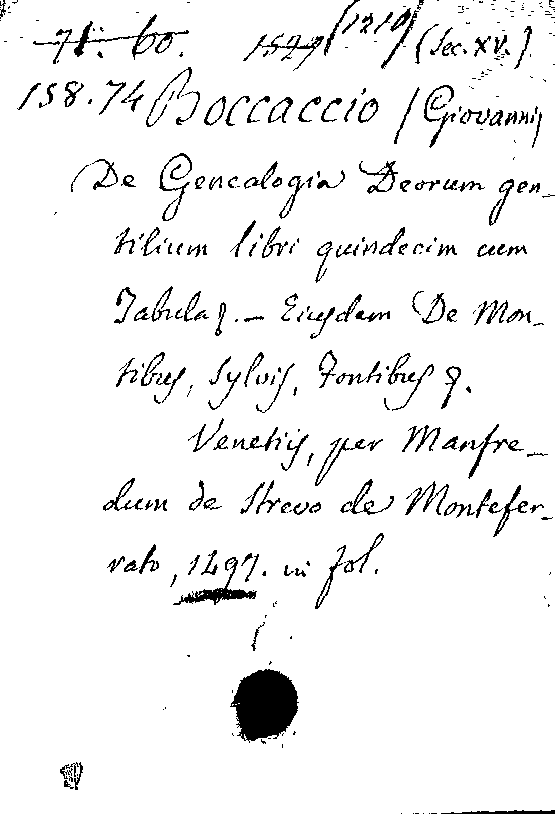 71. 60. 1527 (1210) (Sec. XV.)
158.74 Boccaccio (Giovanni)
De Genealogia Deorum gen-
tilium libri quindecim cum
Tabula &. - Eiusdem De Mon-
tibus, Sylvis, Fontibus &.
Venetiis, per Manfre-
dum de Strevo de Montefer-
rato, 1497. in fol.